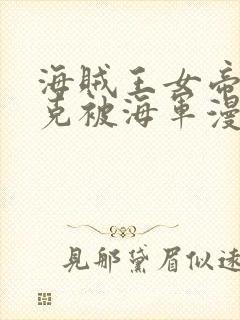 海賊王女帝
克被海軍漫
見那黛眉似遠